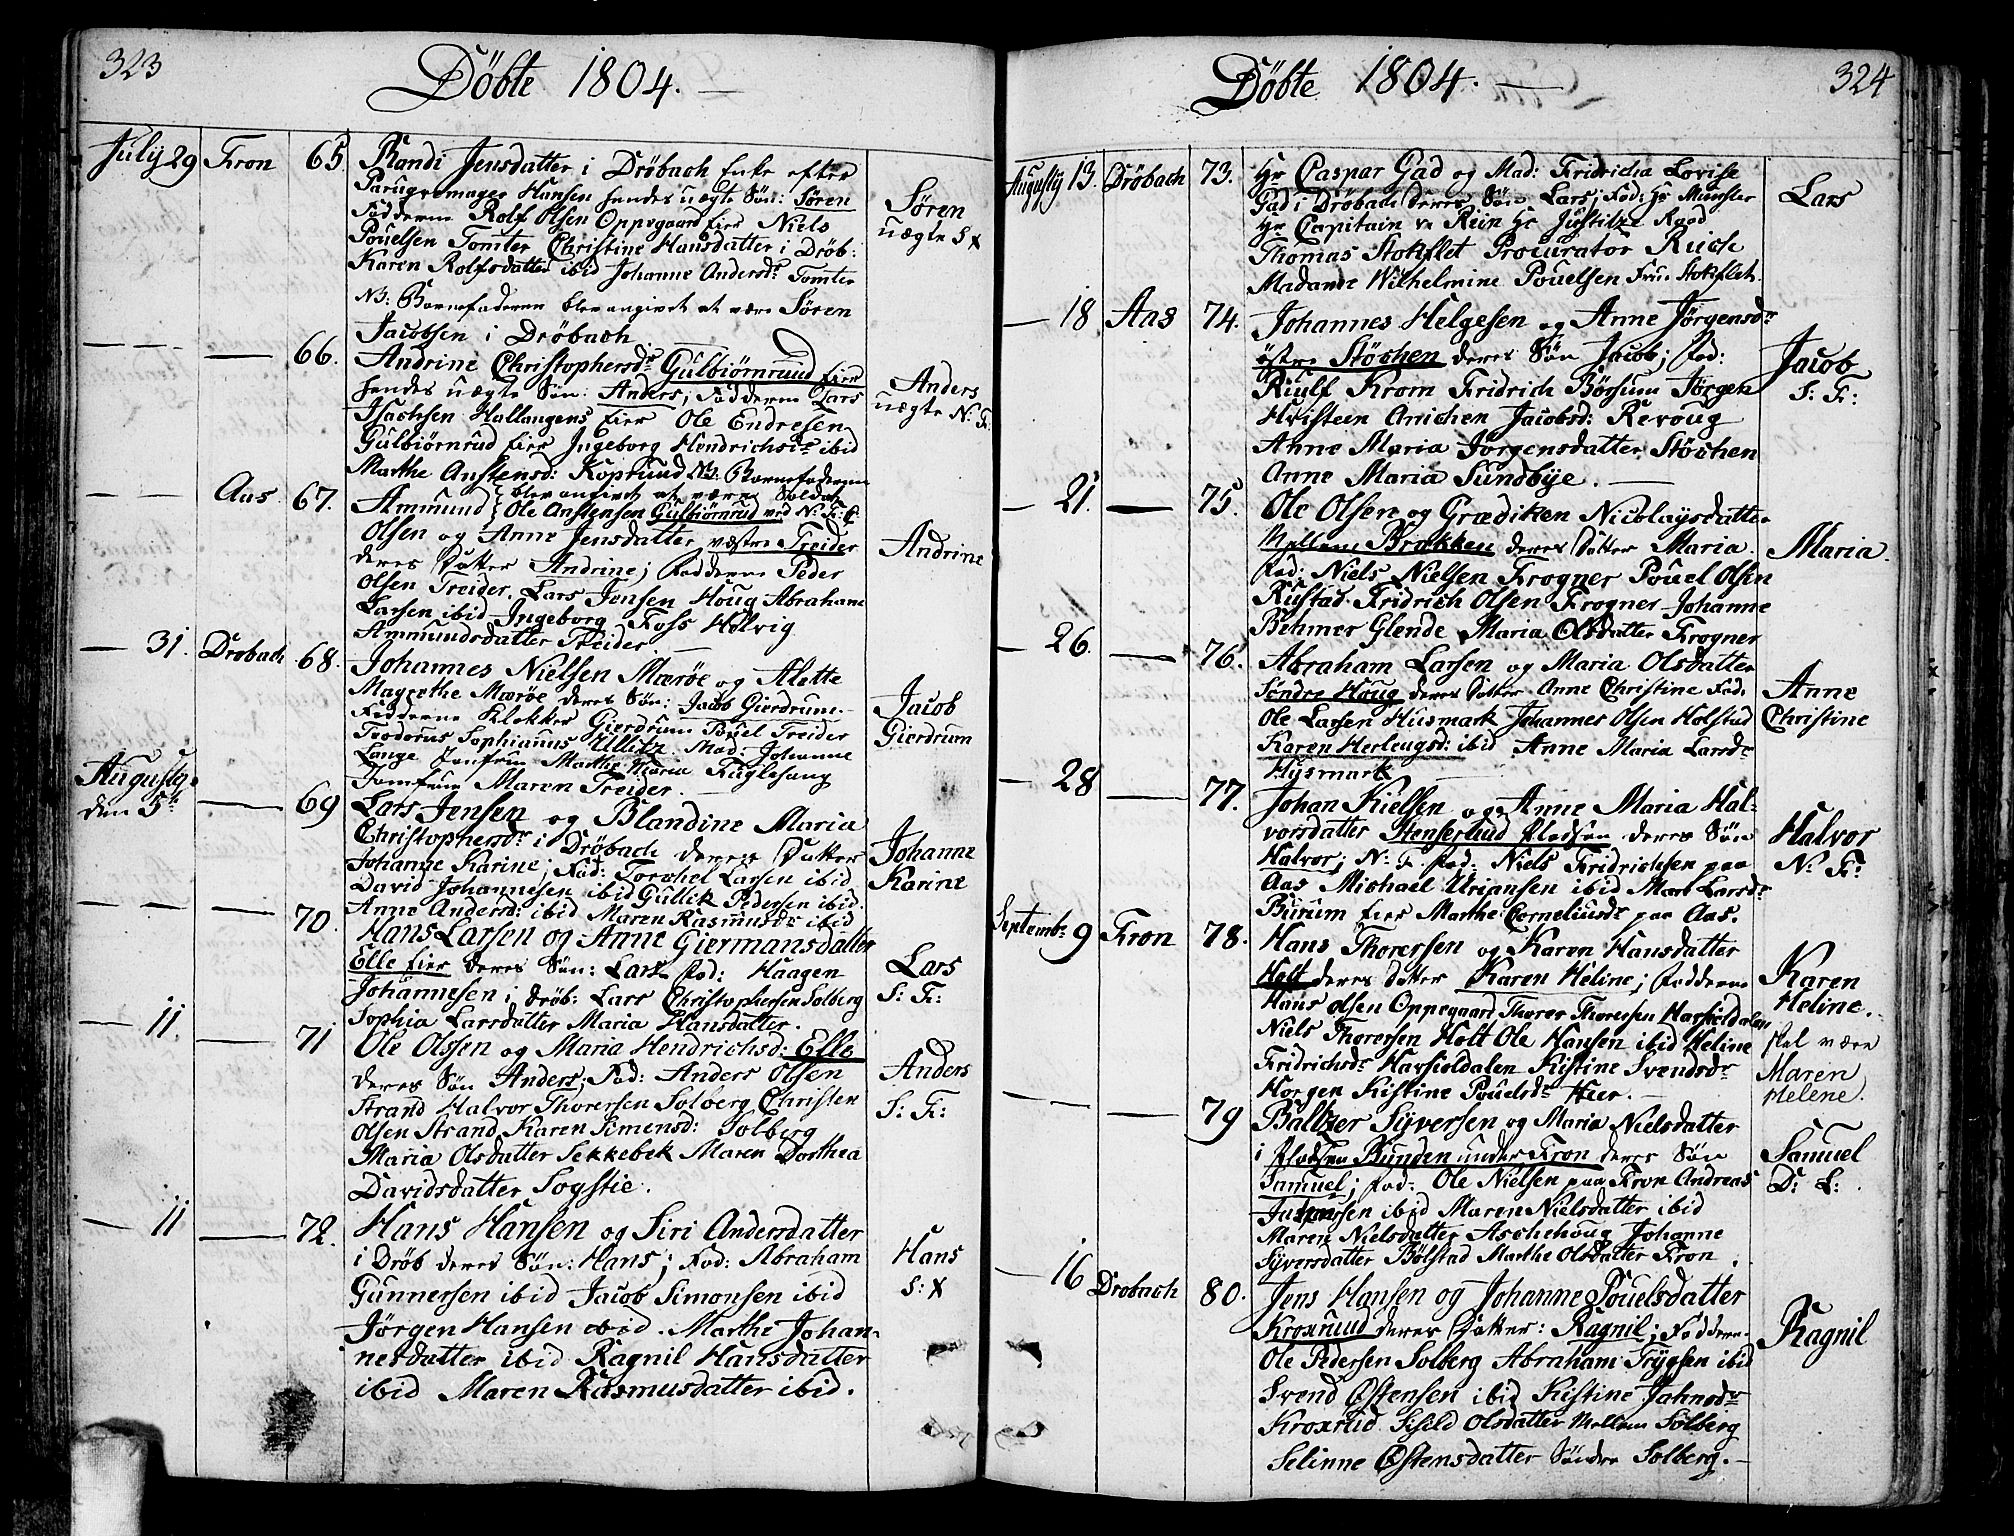 323
Döbte 1804.
July 29 Kron 65. Randi Jensdatter i Dröbach Enke efter
Parugvemager Hansen hendes uægte Sön: Sören
Fadderne Rolf Olsen Oppegaard Eier Niels
Pouelsen Tomter Christine Hansdatter i Dröb:
Karen Rolfsdatter ibid Johanne Andersdr Tomter
NB: Barnefaderen blev angivet at være Sören
Jacobsen i Dröbach
Sören
uægte S X
66. Andrine Christophersdr Gulbiörnrud Eier
hendes uægte Sön: Anders; Fadderne Lars
Isachsen Hallangens Eier Ole Endresen
Gulbiörnrud Eier Ingeborg Hendrichsdr ibid
Marthe Anstensd: Koprund NB: Barnefaderen
blev angivet at være Soldat
Ole Anstensen Gulbiörnrud ved N: F: C:
Anders
uægte N: F:
Aas 67. Ammund
Olsen og Anne Jensdatter væstre Treider
deres Datter Andrine; Fadderne Peder
Olsen Treider. Lars Jensen Houg Abraham
Larsen ibid Ingeborg Foss Helvig
Ammundsdatter Treider.
Andrine
31. Dröbach 68. Johannes Nielsen Mæröe og Alette
Magrethe Mæröe deres Sön: Jacob Gierdrum
Fadderne Klokker Gierdrum Pouel Treider
Teodorus Sophianus Ullitz. Mad: Johanne
Lange Jomfrue Marthe Maria Fuglesang
Jomfrue Maren Treider.
Jacob
Gierdrum
Augusty
den 5te 69 Lars Jensen og Blandine Maria
Christophersdr i Dröbach deres Datter
Johanne Karine; Fad: Torchel Larsen ibid
David Johannesen ibid Gullik Pedersen ibid.
Anne Andersd: ibid Maren Rasmusdr ibid
Johanne
Karine
70. Hans Larsen og Anne Giermansdatter
Elle Eier deres Sön: Lars Fad: Haagen
Johannesen i Dröb: Lars Christophersen Solberg
Sophia Larsdatter Maria Hansdatter.
Lars
S: F:
11. 71 Ole Olssen og Maria Hendrichsd: Elle
deres Sön Anders; Fad: Anders Olsen
Strand Halvor Thorersen Solberg Christen
Olsen Strand Karen Simensd: Solberg
Maria Olsdatter Sekkebek Maren Dorthea
Davidsdatter Sogstie.
Anders
S: F:
11 72. Hans Hansen og Siri Andersdatter
i Dröb deres Sön: Hans; Fad: Abraham
Gunnersen ibid Jacob Simonsen ibid
Jörgen Hansen ibid. Marthe Johan-
nesdatter ibid Ragnil Hansdatter
ibid Maren Rasmusdatter ibid.
Hans
S: X
324
Döbte 1804.
Augusty 13. Dröbach 73. Hr Caspar Gad og Mad: Fridricha Lovise
Gad i Dröbach deres Sön Lars; Fad: Hr Münster
Hr Capitain v: Rein Hr Justitze Raad
Thomas Stokflet Procurator Ruich
Madame Wilhelmine Pouelsen Frue Stokflet.
Lars
18 Aas 74. Johannes Helgesen og Anne Jörgensdr
östre Stöchen deres Sön Jacob; Fad:
Riulf Krom Fridrich Börsum Jörgen
Hvisteen Anichen Jacobsd: Revoug
Anne Maria Jorgensdatter Stöchen
Anne Maria Sundbÿe.
Jacob
S: F:
21. 75. Ole Olsen og Grædiken Nicolaysdatter
Mellem Brækken deres Datter Maria.
Fad: Niels Nielsen Frogner Pouel Olsen
Rustad. Fridrich Olsen Frogner Johanne
Behmer Glende Maria Olsdatter Frogner
Maria
26. 76. Abraham Larsen og Maria Olsdatter
Söndre Houg deres Datter Anne Christine Fad.
Ole Larsen Husmark Johannes Olsen Holstad
Karen Herlaugsd: ibid Anne Maria Larsdr
Husmark
Anne
Christine
28 77. Johan Kielsen og Anne Maria Hal-
vorsdatter Stenserlund Pladsen deres Sön
Halvor; N: F. Fad: Niels Fridrichsen paa
Aas Michael Uriansen ibid Mari Larsdr
Burum Eier Marthe Corneliusdr paa Aas.
Halvor
N: F:
Septembr 9 Kron 78. Hans Thorersen og Karen Hansdatter
Holt deres Datter Karen Heline; Fadderne
Hans Olsen Oppegaard Thorer Thoresen Harsioldalen
Niels Thorersen Holt Ole Hansen ibid Heline
Fridrichsdr Harsioldalen Kistine Svendsdr
Horgen Kistine Pouelsdr Heer.
Karen
Heline.
skal være
Maren
Helene.
79 Baltzer Syversen og Maria Nielsdatter
i Pladsen Bunden under Kron deres Sön
Samuel; Fad: Ole Nielsen paa Kron Andreas
Jespersen ibid Maren Nielsdatter ibid
Maren Nielsdatter Aschehoug Johanne
Syversdatter Bölstad Marthe Olsdatter Kron.
Samuel
D: L:
16 Dröbach 80. Jens Hansen og Johanne Pouelsdatter
Kroxrud deres Datter: Ragnil; Faddere
Ole Pedersen Solberg Abraham Trygsen ibid
Svend Østensen ibid Kistine Jahnsdr
Kroxrud Sisild Olsdatter Mellem Solberg
Selinne Østensdatter Söndre Solberg.
Ragnil